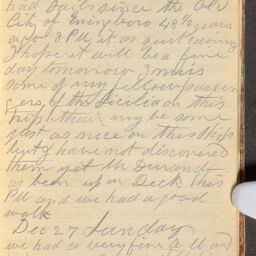 had Dails since the Old
City of 48 1/2 years
ago 8 PM it as quit raining
I hope it will be a fine
day tomorrow I miss
some of my fellow passen
gers of the Sicilia on this
ship thair may be some
just as nice on this ship
but I have not discovered
them yet Mr Durand
as been up on Deck this
PM and we had a good
walk
Dec 27 Sunday
we had a very fine and